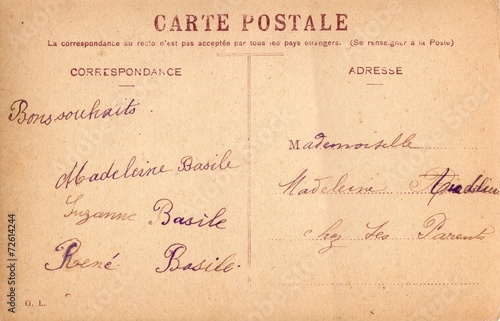 CARTE POSTALE
La correspondance au recto n'est pas acceptée par tous les pays étrangers. (Se renseigner à la Poste)
CORRESPONDANCE
Bons souhaits.
Madeleine Basile
Suzanne Basile
René Basile.
G. L.
ADRESSE
Mademoiselle
Madeleine
Chez Ses Parents
Adobe Stock | #72614244